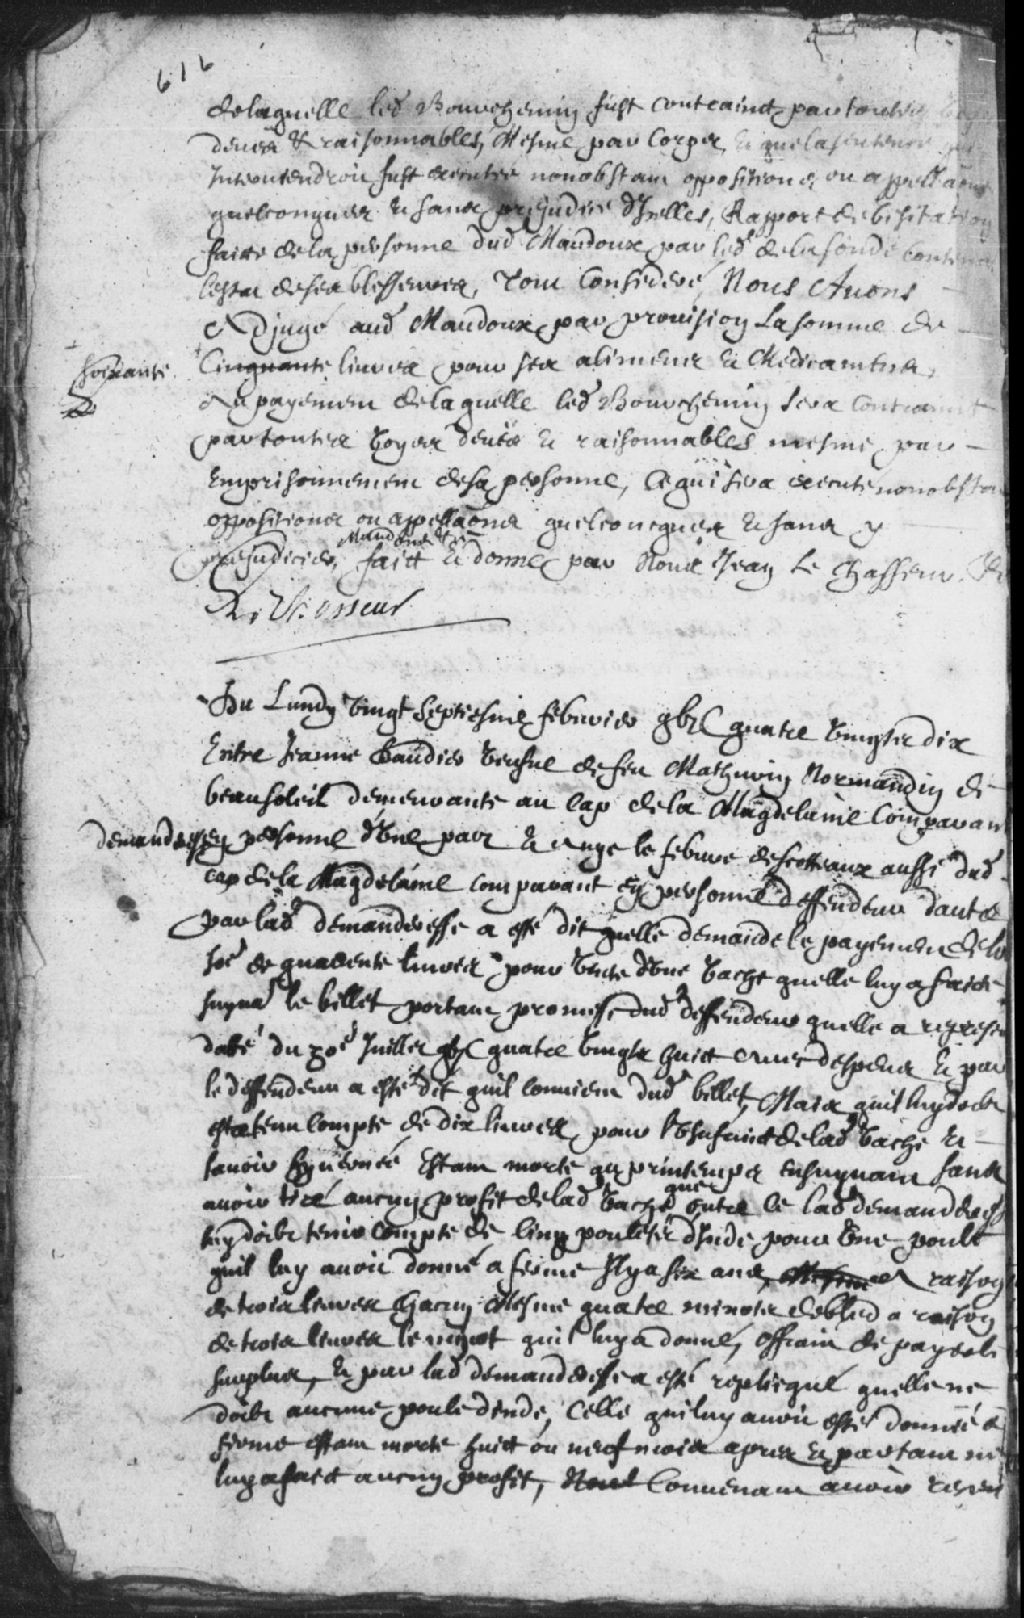 616
de laquelle led Bourchemin fust contraint par toutes voyes
deues & raisonnables, Mesme par Corps, et que la sentence qui
Interviendroit fust executée nonobstant oppositions ou appellaõns
quelconques et sans prejudice d'Icelles, Rapport de Visitation
faitte de la personne dud Maudoux par led de la fonde Contenant
lestat de ses blesseures, Tout Considéré, Nous Avons
Adjugé aud Maudoux par provision La somme de
soixante
Cinquante livres pour ses alimens et Medicamens,
Au payement de laquelle led Bourchemin sera Contraint
par toutes voyes deües et raisonnables mesme par
Emprisonnement de sa personne, Ce qui sera executé nonobstant
oppositions ou appellaõns quelconques et sans y
prejudicier, Mandons &c fait et donné par Nous Jean Le Chasseur
Le Chasseur
Du Lundy vingt septiesme febvrier gbjC quatre vingts dix
Entre Jeanne Gaudier veufue de feu Mathurin Normandin de
beausoleil demeurante au Cap de la Magdelaine Comparant
demanderesse en personne d'Une part et Ange le febvre descosteaux aussi dud
Cap de la Magdelaine comparant en personne deffendeur dautre
par lad demanderesse a esté dit quelle demande le payement de la
soẽ de quarente livres pour vente d'Une vache quelle luy a faite
suyvt le billet portant promesse dud deffendeur quelle a representé
datté du xxe Juillet gbjC quatre vingts huit avec despens et par
le deffendeur a esté dit quil convient dud billet, Mais quil luy doit
estre tenu compte de dix livres pour l'Usufruict de lad Vache et
lavoir hyvernée Estant morte au printemps ensuyvant sans
avoir tiré aucun profit de lad Vache, que outre ce lad demanderesse
luy doibt tenir compte de cinq poulets d'Inde pour Une poule
quil luy avoit donné a ferme Il y a six ans, a raison
de trois livres chacun Mesme quatre minots de bled a raison
de trois livres le minot quil luy a donné, offrant de payer le
surplus, et par lad demanderesse a esté repliqué quelle ne
doibt aucune poule dinde, Celle quil luy avoit esté donnée a
ferme estant morte huit ou neuf mois apres et partant ne
luy a fait aucun profit, Convenant avoir receu